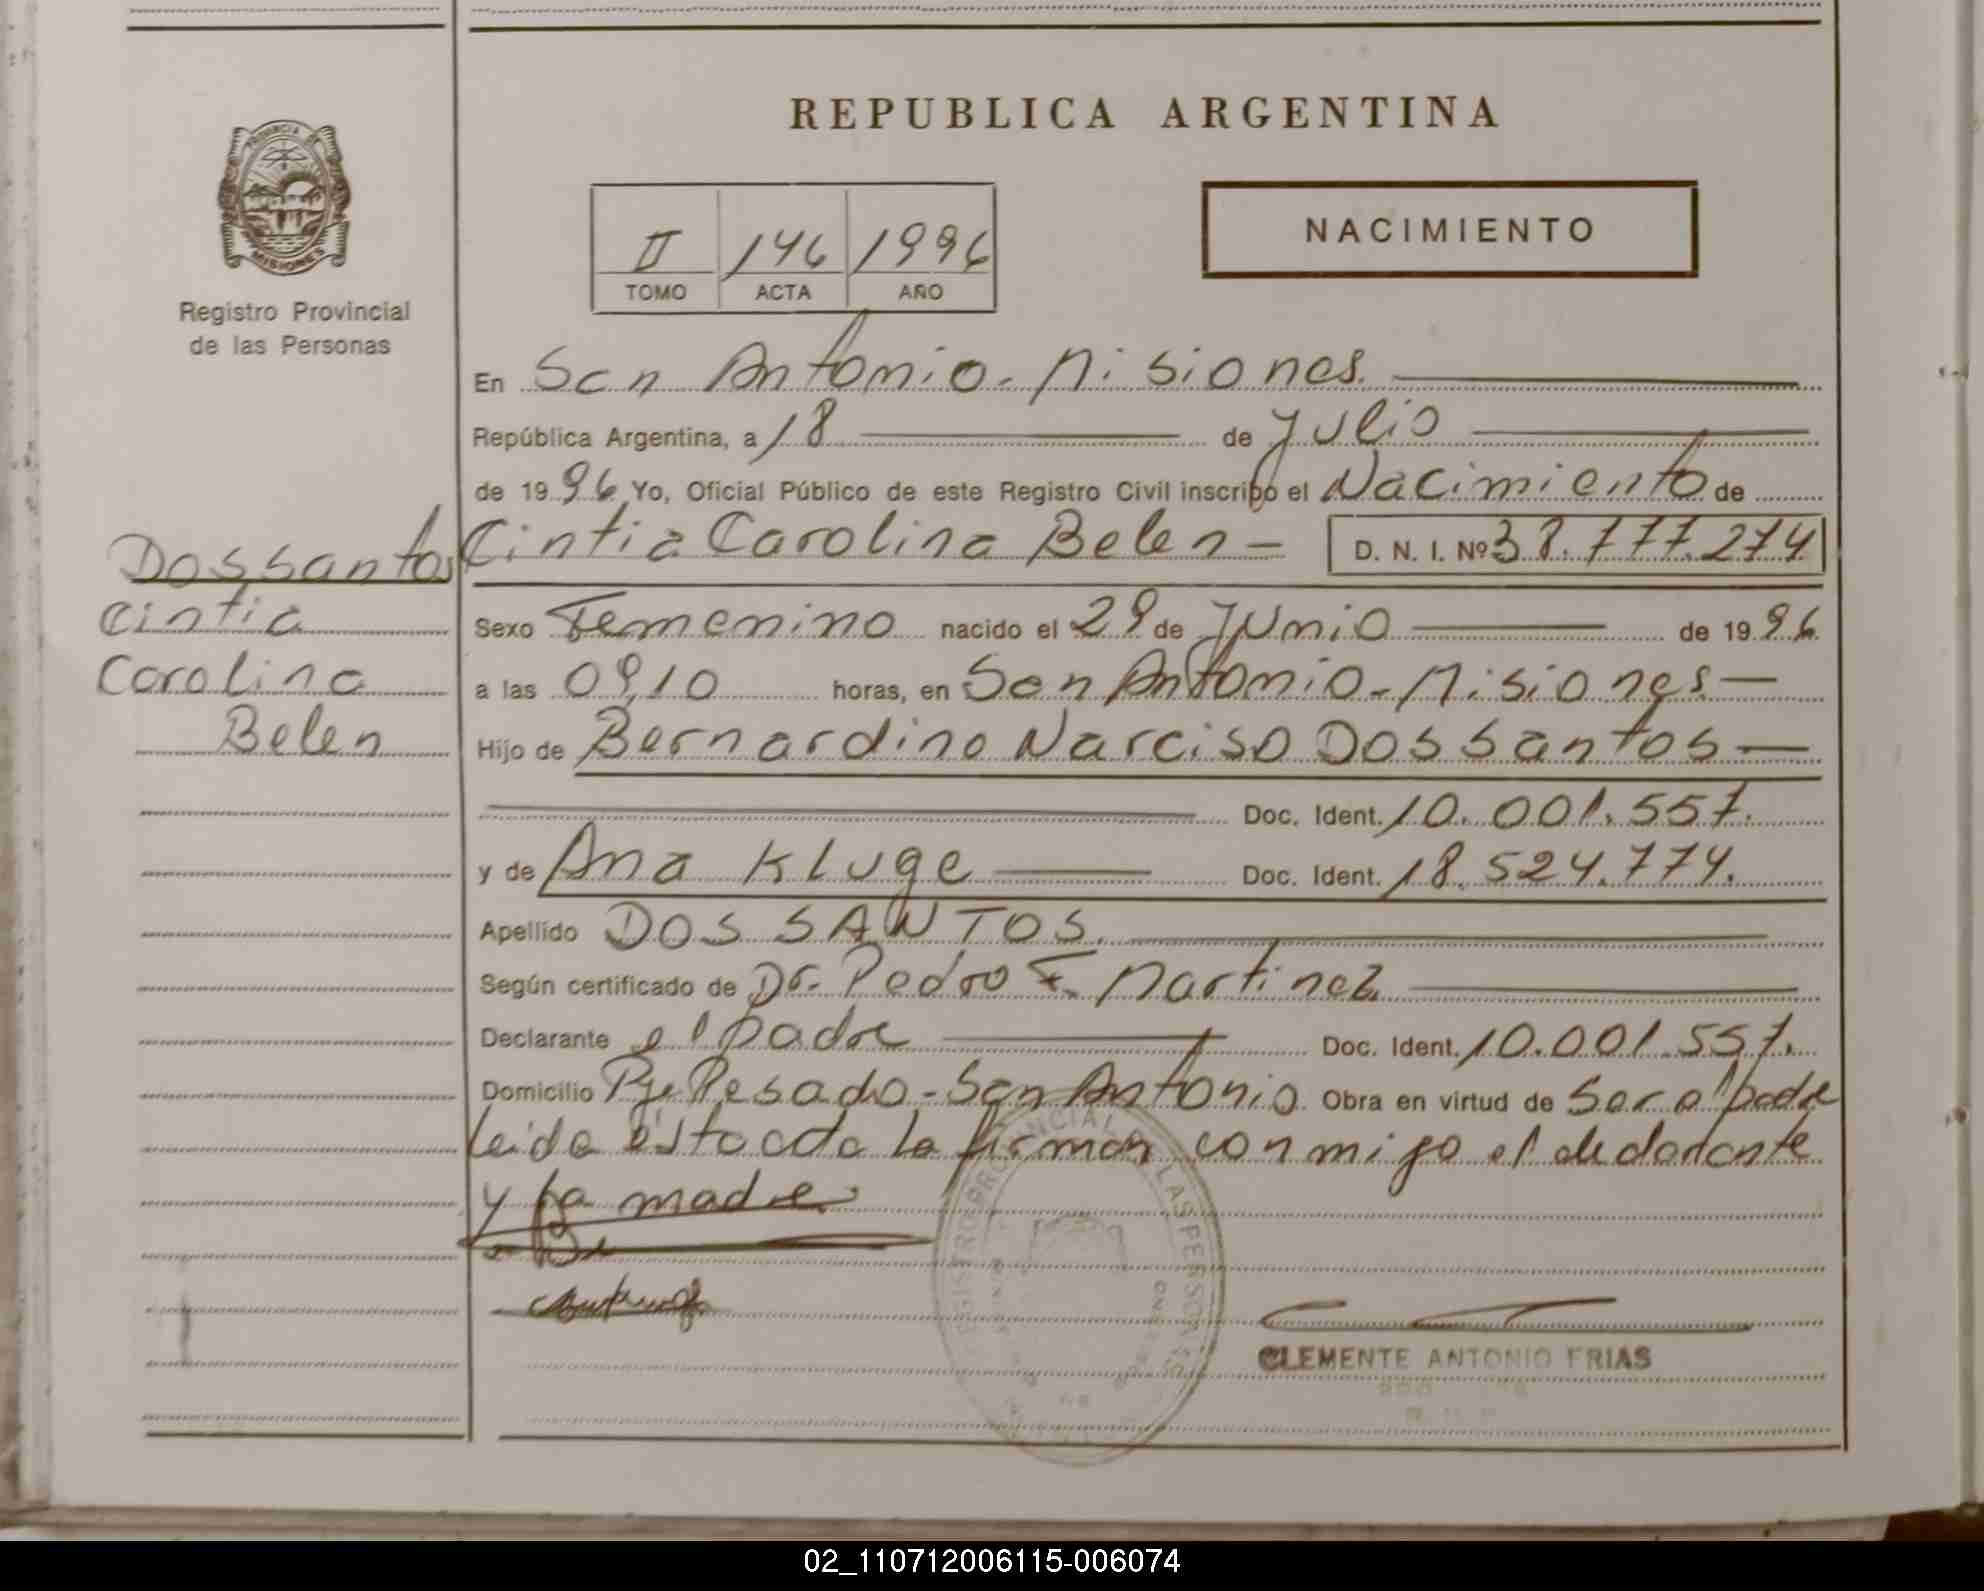 REPUBLICA ARGENTINA
PROVINCIA DE
MISIONES
Registro Provincial
de las Personas
II 146 1996
TOMO ACTA AÑO
NACIMIENTO
En San Antonio - Misiones.
República Argentina, a 18 de Julio
de 1996 Yo, Oficial Público de este Registro Civil inscribo el Nacimiento de
Cintia Carolina Belen - D. N. I. Nº 38.777.274
Dossantos
Cintia
Carolina
Belen
Sexo Femenino nacido el 29 de Junio de 1996
a las 09,10 horas, en San Antonio - Misiones -
Hijo de Bernardino Narciso Dos Santos -
Doc. Ident. 10.001.557.
y de Ana Kluge Doc. Ident. 18.524.774.
Apellido DOS SANTOS.
Según certificado de Dr. Pedro F. Martinez
Declarante el padre Doc. Ident. 10.001.557.
Domicilio Pje Pesado - San Antonio Obra en virtud de ser el padre
leida esta acta la firman conmigo el declarante
y la madre
CLEMENTE ANTONIO FRIAS
02_110712006115-006074